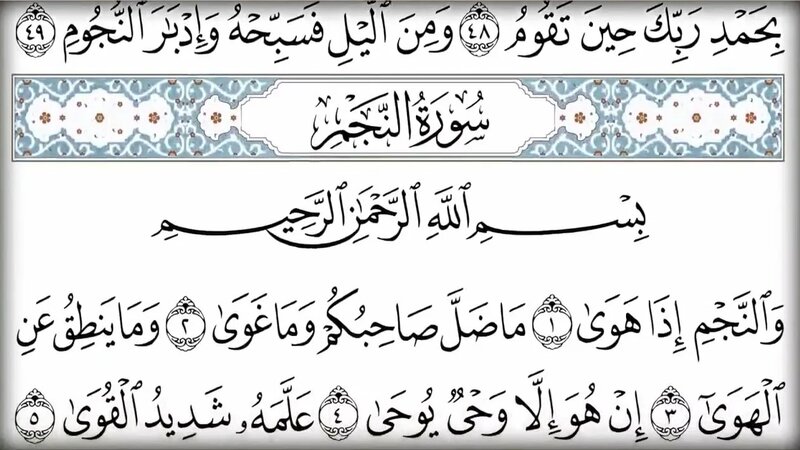 بِحَمْدِ رَبِّكَ حِينَ تَقُومُ ٤٨ وَمِنَ ٱلَّيْلِ فَسَبِّحْهُ وَإِدْبَٰرَ ٱلنُّجُومِ ٤٩
سُورَةُ النَّجْمِ
بِسْمِ ٱللَّهِ ٱلرَّحْمَٰنِ ٱلرَّحِيمِ
وَٱلنَّجْمِ إِذَا هَوَىٰ ١ مَا ضَلَّ صَاحِبُكُمْ وَمَا غَوَىٰ ٢ وَمَا يَنطِقُ عَنِ
ٱلْهَوَىٰٓ ٣ إِنْ هُوَ إِلَّا وَحْىٌ يُوحَىٰ ٤ عَلَّمَهُۥ شَدِيدُ ٱلْقُوَىٰ ٥